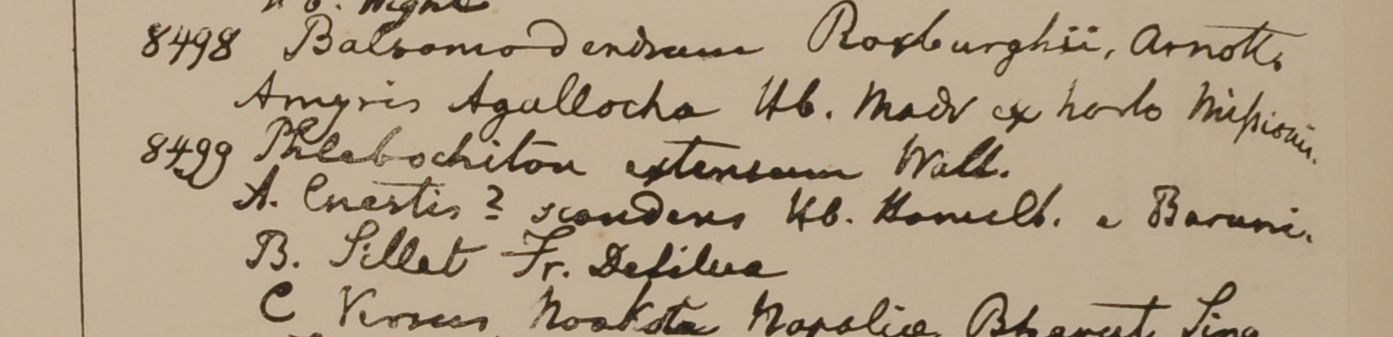 Hb. Wight
8498 Balsamodendrum Roxburghii, Arnott.
Amyris Agallocha Hb. Madr ex horto Mission.
8499 Phlebochiton extensum Wall.
A. Cnestis? scandens Hb. Hamilt. e Baruni.
B. Sillet Fr. De Silva
C Versus Noakote Napaliæ Bharut Sing